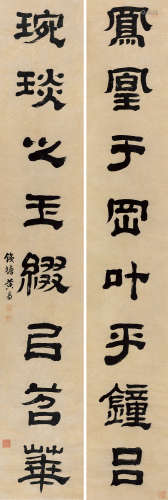 鳳皇于岡叶乎鐘呂
琬琰之玉綴以苕華
錢塘黃易